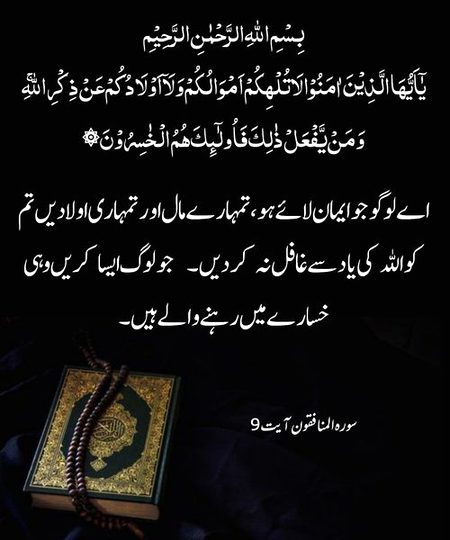 بِسْمِ اللهِ الرَّحْمٰنِ الرَّحِيْمِ
يٰٓاَيُّهَا الَّذِيْنَ اٰمَنُوْا لَا تُلْهِكُمْ اَمْوَالُكُمْ وَلَآ اَوْلَادُكُمْ عَنْ ذِكْرِ اللّٰهِ ۚ
وَمَنْ يَّفْعَلْ ذٰلِكَ فَاُولٰٓئِكَ هُمُ الْخٰسِرُوْنَ ۞
اے لوگو جو ایمان لائے ہو، تمہارے مال اور تمہاری اولادیں تم
کو اللہ کی یاد سے غافل نہ کر دیں۔ جو لوگ ایسا کریں وہی
خسارے میں رہنے والے ہیں۔
سورہ المنافقون آیت 9